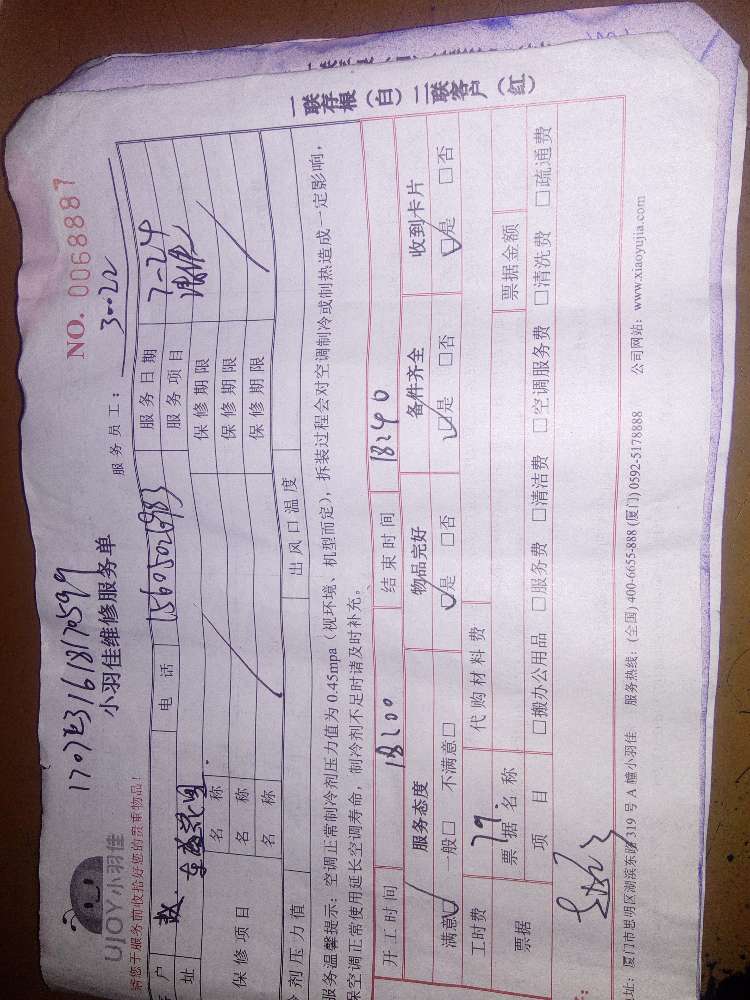 一联存根（白）二联客户（红）
NO. 0068887
UJOY小羽佳
小羽佳维修服务单
服务员工： 30022
请您于服务前收拾好您的贵重物品！
户 赵 电 话 15605026983 服务日期 7-24
址 服务项目
保修项目 名 称 保修期限
名 称 保修期限
名 称 保修期限
剂压力值 出风口温度
服务温馨提示：空调正常制冷剂压力值为 0.45mpa（视环境、机型而定），拆装过程会对空调制冷或制热造成一定影响，
保空调正常使用延长空调寿命，制冷剂不足时请及时补充。
开工时间 18:00 结束时间 18:40
服务态度 物品完好 备件齐全 收到卡片
满意□ 一般□ 不满意□ □是 □否 □是 □否 □是 □否
工时费 79. 代购材料费
票据 票据名称 票据金额
项 目 □搬办公用品 □服务费 □清洁费 □空调服务费 □清洗费 □疏通费
址：厦门市思明区湖滨东路 319 号 A 幢小羽佳 服务热线：(全国) 400-6655-888 (厦门) 0592-5178888 公司网站：www.xiaoyujia.com